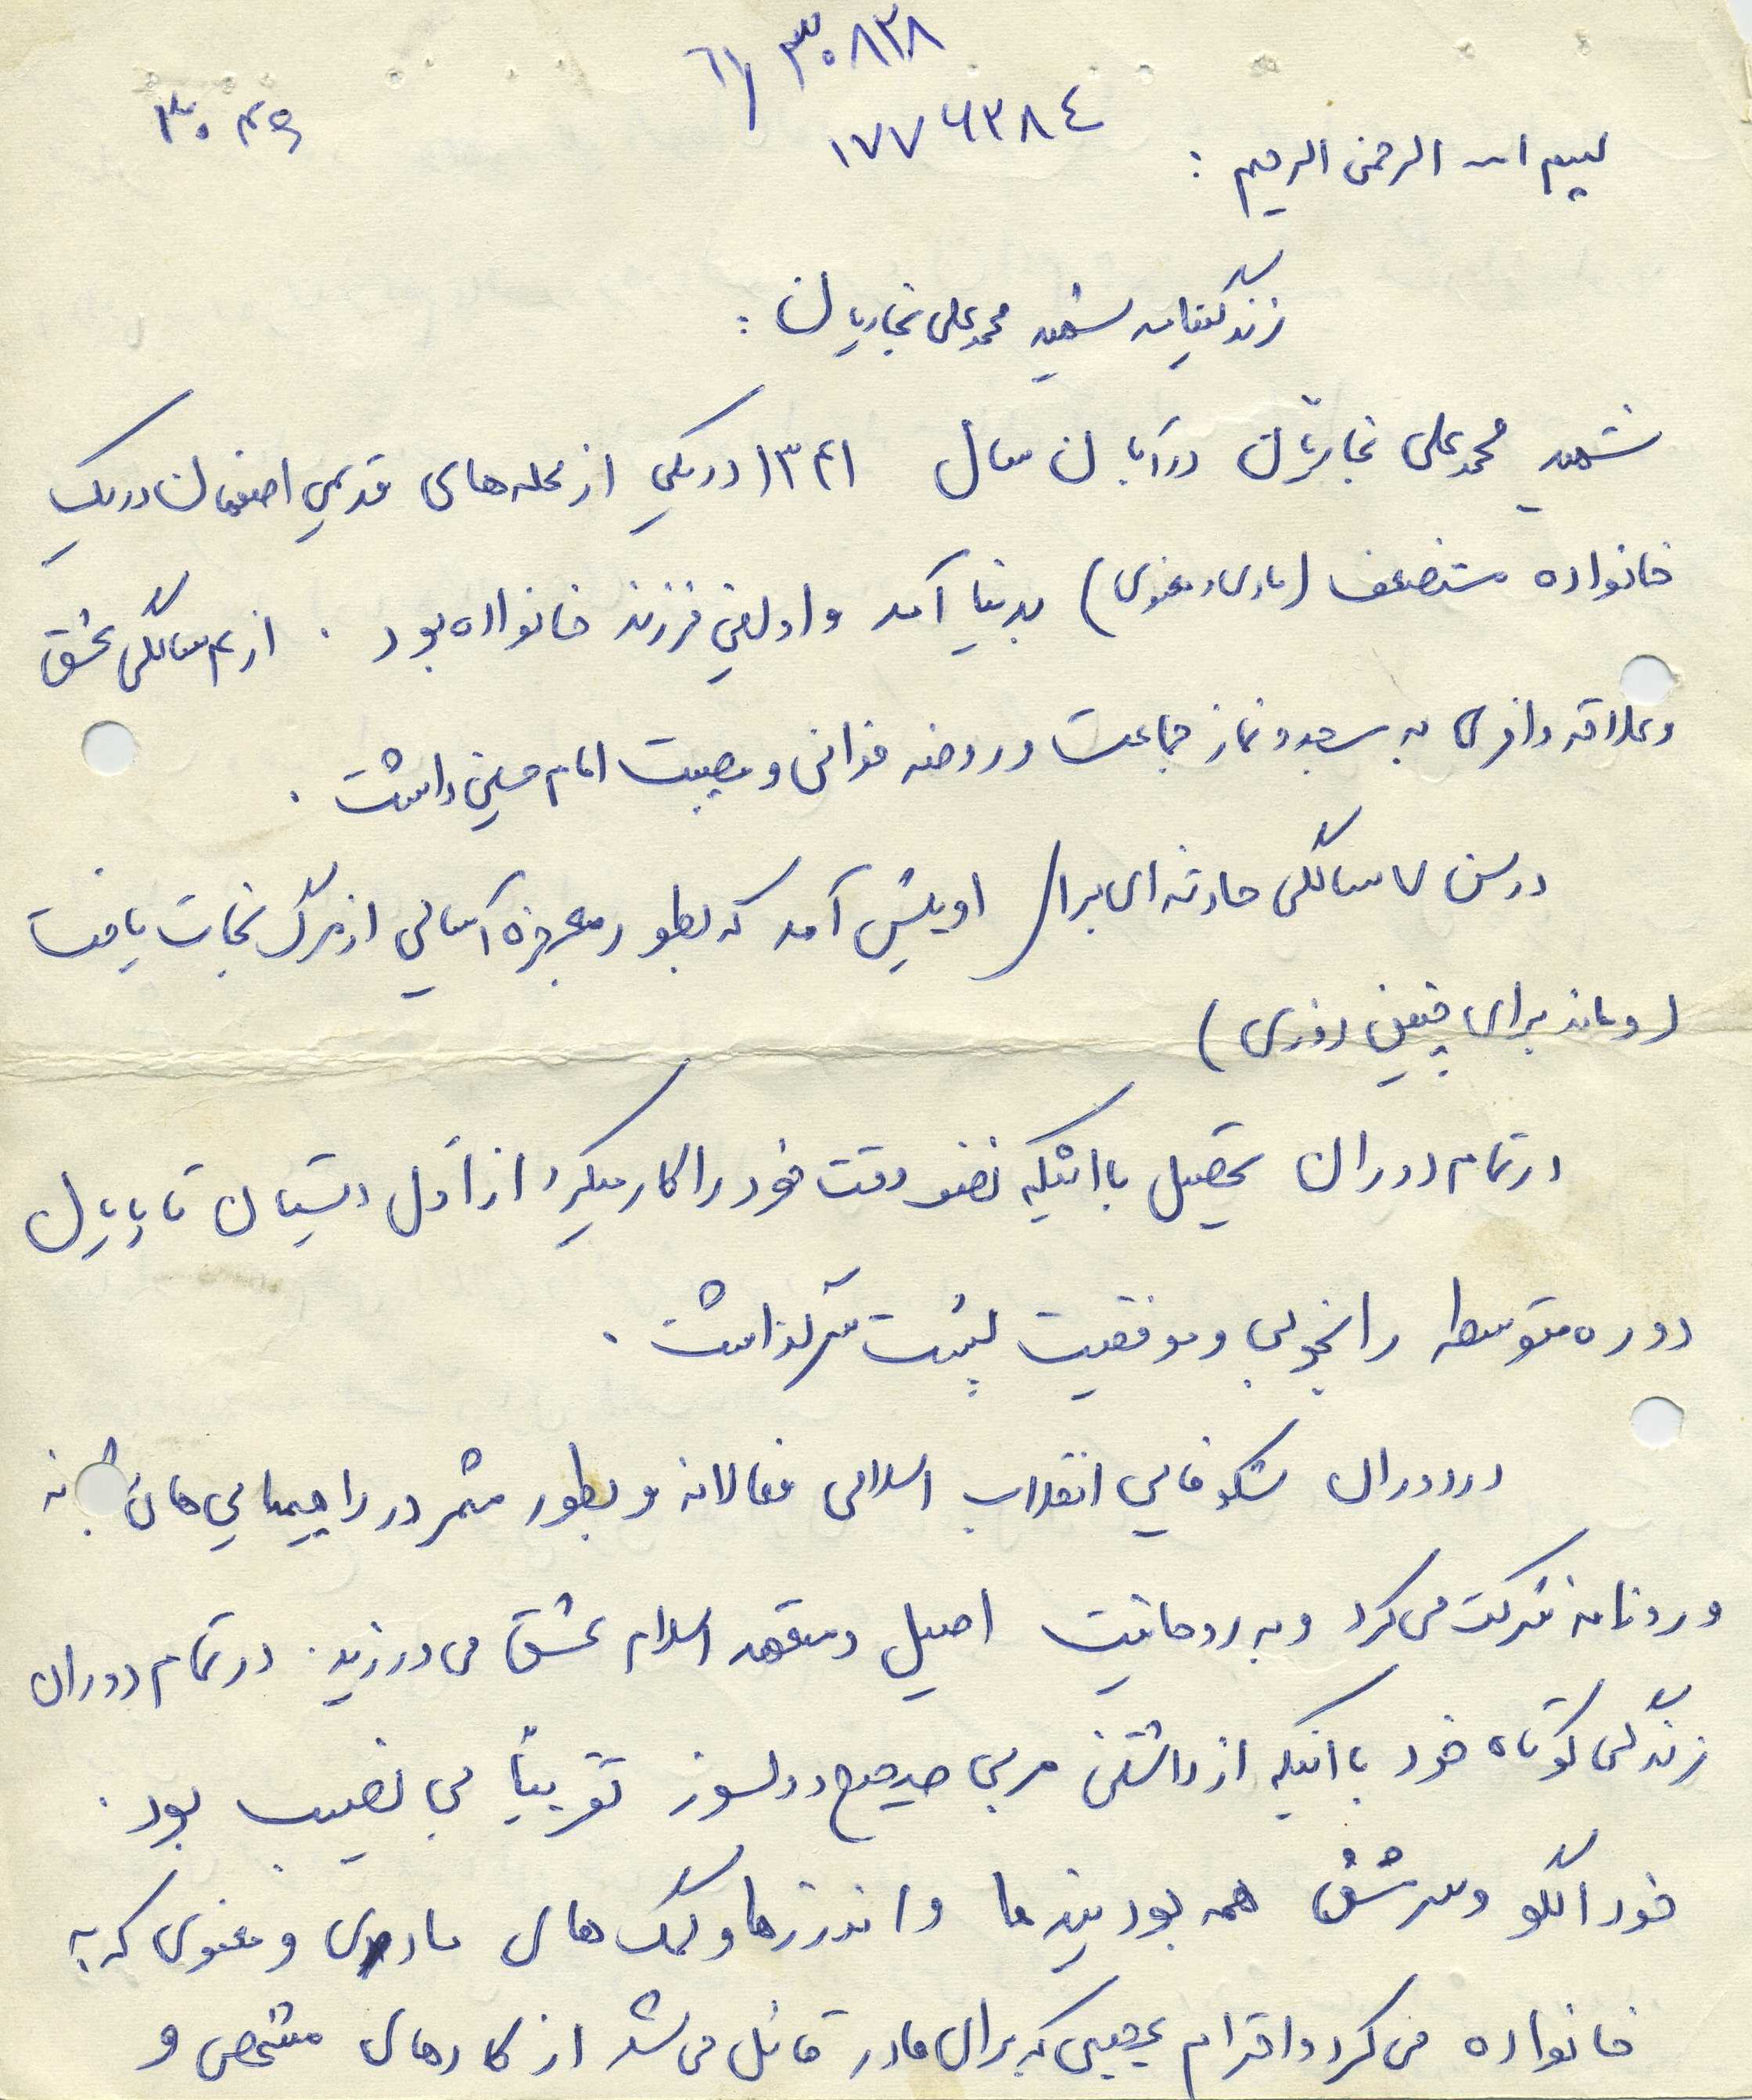 ۶۱/۳۰۸۳۸
۱۷۷۶۳۸۴
۳۰۴۹
بسم الله الرحمن الرحیم :
زندگینامه شهید محمدعلی نجاریان :
شهید محمدعلی نجاریان در آبان سال ۱۳۴۱ در یکی از محله‌های قدیمی اصفهان در یک
خانواده مستضعف (مادی و معنوی) بدنیا آمد و اولین فرزند خانواده بود . از ۴ سالگی عشق
و علاقه وافری به مسجد و نماز جماعت و روضه خوانی و مصیبت امام حسین داشت .
در سن ۷ سالگی حادثه‌ای برای او پیش آمد که بطور معجزه آسایی از مرگ نجات یافت
(و ماند برای چنین روزی)
در تمام دوران تحصیل با اینکه نصف وقت خود را کار میکرد از اول دبستان تا پایان
دوره متوسطه را بخوبی و موفقیت پشت سر گذاشت .
در دوران شکوفایی انقلاب اسلامی فعالانه و بطور مثمر در راهپیمایی‌های شبانه
و روزانه شرکت می‌کرد و به روحانیت اصیل و متعهد اسلام عشق می‌ورزید . در تمام دوران
زندگی کوتاه خود با اینکه از داشتن مربی صحیح و دلسوز تقریباً بی نصیب بود .
خود الگو و سرمشق همه بود پندها و اندرزها و کمک‌های مادی و معنوی که به
خانواده می‌کرد و احترام عجیبی که برای مادر قائل می‌شد از کارهای مشخص و